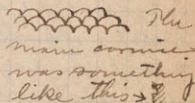 The
main cornice
was something
like this →